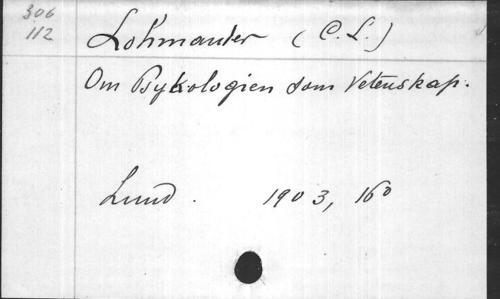 306
112
Lohmander (C. L.)
Om Psykologien som Vetenskap.
Lund. 1903, 16°